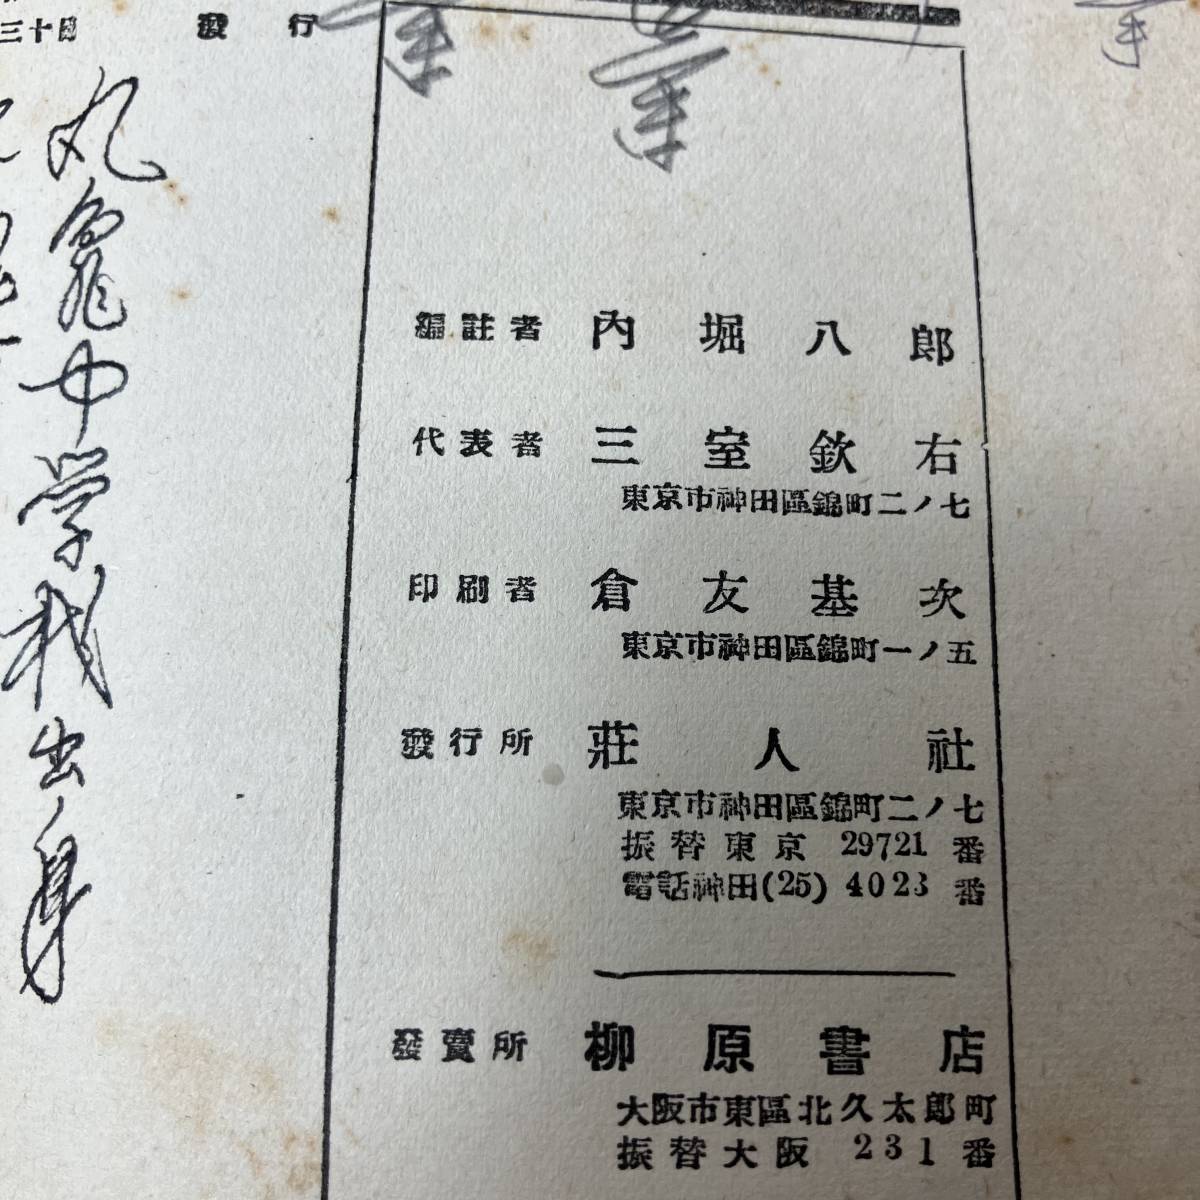 三十日 發行
編註者 內堀八郎
代表者 三室欽右
東京市神田區錦町二ノ七
印刷者 倉友基次
東京市神田區錦町一ノ五
發行所 莊人社
東京市神田區錦町二ノ七
振替東京 29721 番
電話神田(25) 4023 番
發賣所 柳原書店
大阪市東區北久太郎町
振替大阪 231 番
丸龜中学我出身